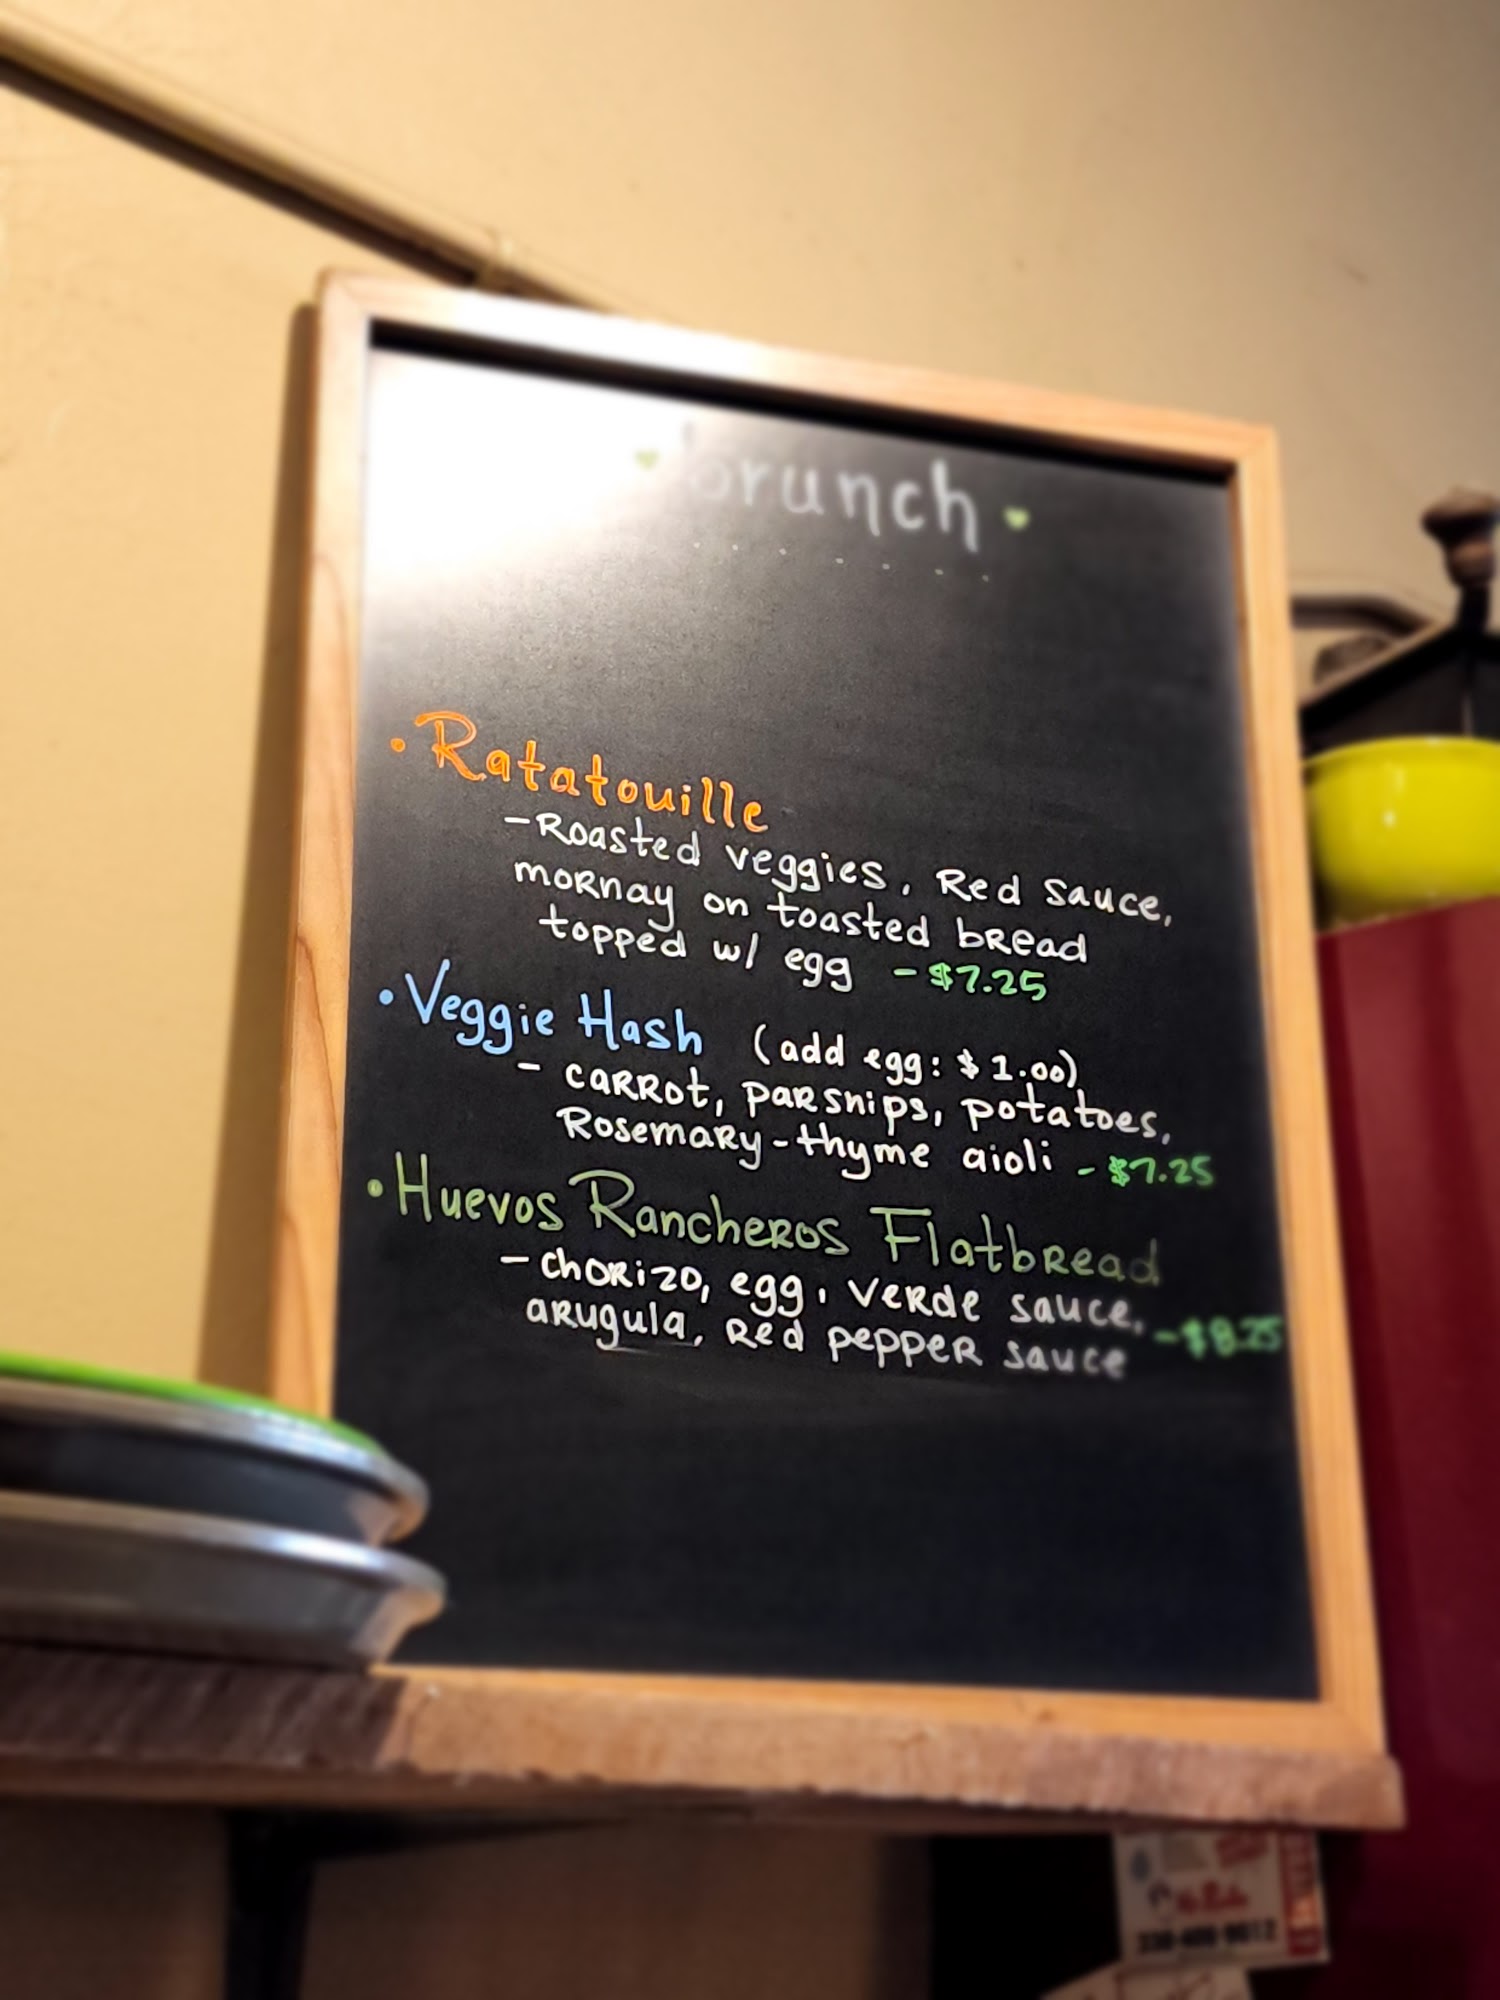 brunch
• Ratatouille
- Roasted veggies, Red sauce,
mornay on toasted bread
topped w/ egg - $7.25
• Veggie Hash (add egg: $1.00)
- carrot, parsnips, potatoes,
Rosemary-thyme aioli - $7.25
• Huevos Rancheros Flatbread
- chorizo, egg, verde sauce,
arugula, red pepper sauce - $8.25